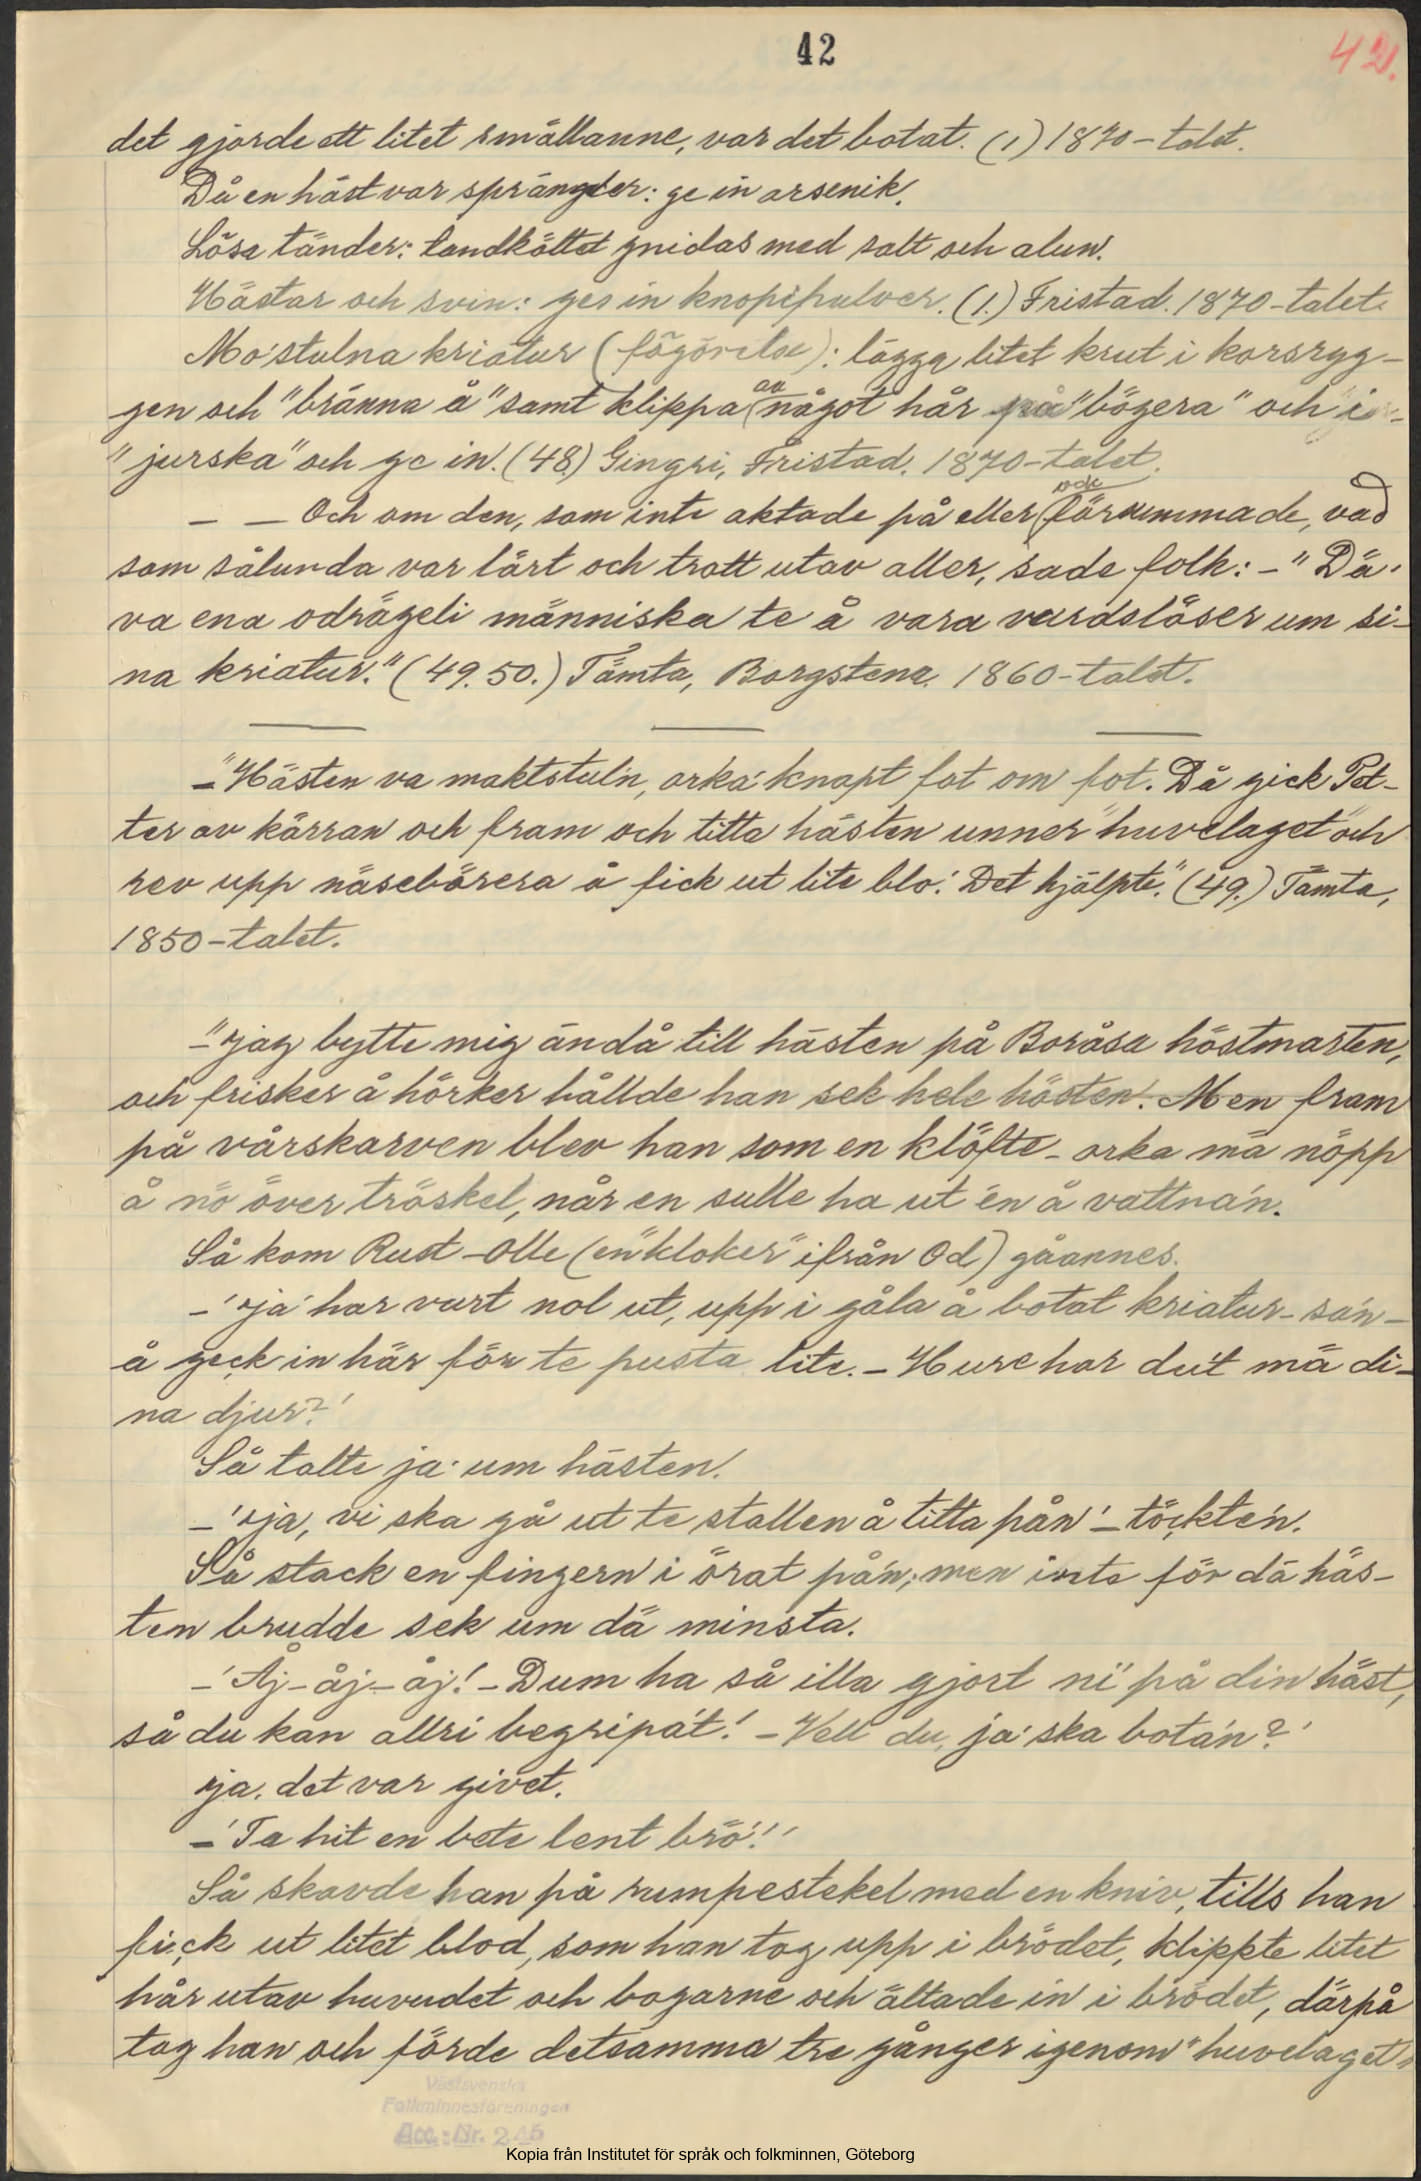 42
42.
det gjorde ett litet smällanne, var det botat. (1) 1870-talet.
Då en häst var sprängder: ge in arsenik.
Lösa tänder: tandköttet gnidas med salt och alun.
Hästar och svin: ges in knopipulver. (1.) Fristad. 1870-talet.
Mo'stulna kriatur (fögörelse): lägga litet krut i korsryg-
gen och "bränna å" samt klippa av något hår på "bögera" och i
"jurska" och ge in. (48.) Gingri, Fristad. 1870-talet.
— — Och om den, som inte aktade på eller försummade, vad
som sålunda var lärt och trott utav aller, sade folk: - "Dä'
va ena odrägeli människa te å vara vardslöser um si-
na kriatur." (49. 50.) Tämta, Borgstena. 1860-talet.
-"Hästen va maktstul'n, orka' knapt fot om fot. Då gick Pet-
ter av kärran och fram och titta hästen unner "huvelaget" och
rev upp näsebörera å fick ut lite blo'. Det hjälpte." (49.) Tämta,
1850-talet.
-"Jag bytte mig ändå till hästen på Boråsa höstmarten,
och frisker å hörker hållde han sek hele hösten. Men fram
på vårskarven blev han som en klöfte - orka mä nöpp
å nö över tröskel, når en sulle ha ut én å vattna'n.
Så kom Rust-Olle (en "kloker" ifrån Od) gåannes.
-'Ja' har vart nol ut, uppi gåla å botat kriatur - sa'n -
å geck in här för te pusta lite. - Hure har du't mä di-
na djur?'
Så talte ja' um hästen.
-'Ja, vi ska gå ut te stallen å titta på'n' - töckte'n.
Så stack en fingern i örat på'n; men inte för dä häs-
ten brudde sek um dä minsta.
-'Åj-åj-åj! - Dum ha så illa gjort ni' på din häst,
så du kan allri begripa't! - Vell du, ja' ska bota'n?'
Ja, det var givet.
-'Ta hit en bete lent brö'!'
Så skavde han på rumpestekel med en kniv, tills han
fick ut litet blod, som han tog upp i brödet, klippte litet
hår utav huvudet och bogarne och ältade in i brödet, därpå
tog han och förde detsamma tre gånger igenom "huvelaget"
Västsvenska
Folkminnesföreningen
Acc. Nr. 245
Kopia från Institutet för språk och folkminnen, Göteborg